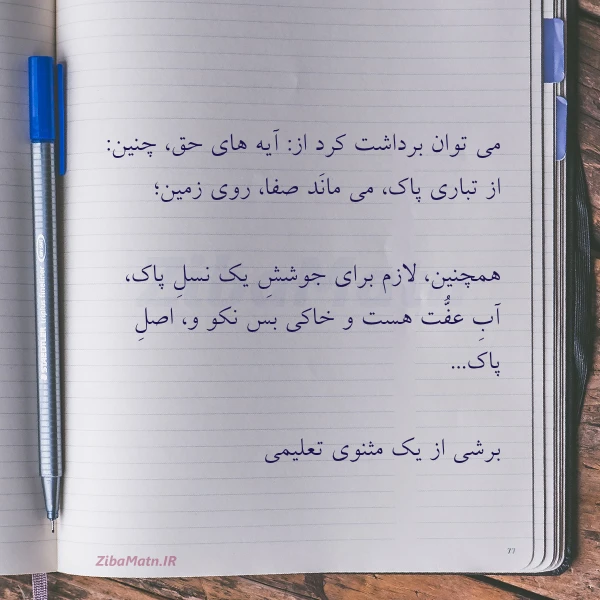 می توان برداشت کرد از: آیه های حق، چنین:
از تباری پاک، می مانَد صفا، روی زمین؛
همچنین، لازم برای جوششِ یک نسلِ پاک،
آبِ عفُّت هست و خاکی بس نکو و، اصلِ
پاک...
برشی از یک مثنوی تعلیمی
77
ZibaMatn.IR